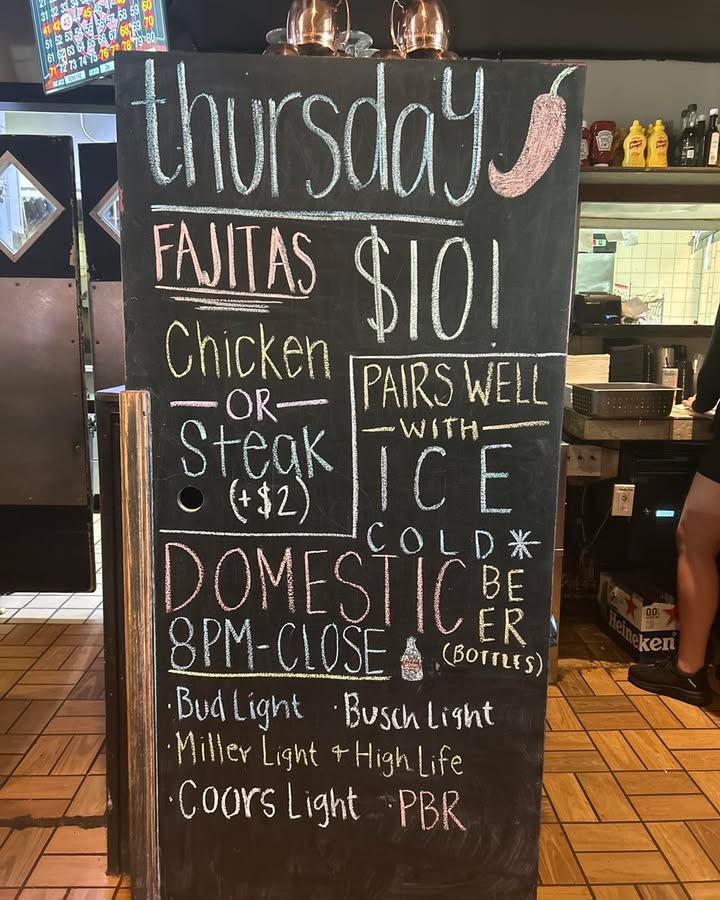 thursday
FAJITAS
$10!
Chicken
—OR—
Steak
(+$2)
PAIRS WELL
—WITH—
ICE
COLD*
DOMESTIC
BE
ER
(BOTTLES)
8PM-CLOSE
·Bud Light ·Busch Light
·Miller Light + High Life
·Coors Light ·PBR
0.0
Heineken